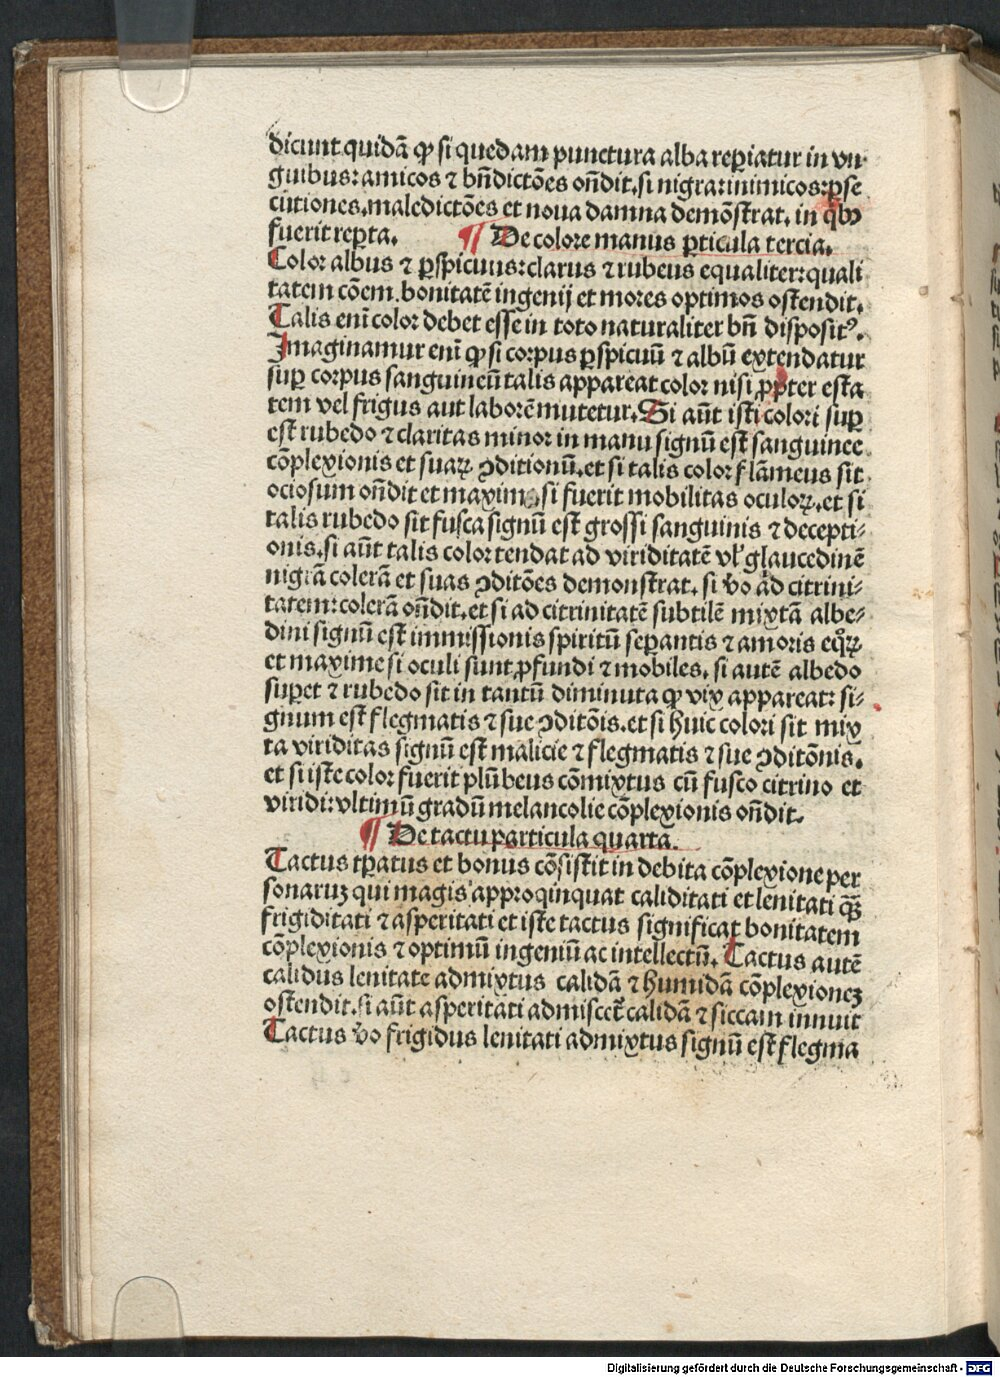 dicunt quidā ꝙ si quedam punctura alba reꝑiatur in vn
guibus: amicos ⁊ bn̄dictōes on̄dit. si nigra: inimicos: ꝑse
cutiones. maledictōes et noua damna demōstrat. in qbꝰ
fuerit reꝑta. ¶ De colore manus ꝑticula tercia.
Color albus ⁊ ꝑspicuus: clarus ⁊ rubeus equaliter: quali
tatem cōem. bonitatē ingenij et mores optimos ostendit.
Talis eni color debet esse in toto naturaliter bn̄ disposit⁹.
Imaginamur eni ꝙ si corpus ꝑspicuū ⁊ albū extendatur
suꝑ corpus sanguineū talis appareat color nisi ꝓpter esta
tem vel frigus aut laborē mutetur. Si aūt isti colori suꝑ
est rubedo ⁊ claritas minor in manu signū est sanguinee
cōplexionis et suaꝝ ꝯditionū. et si talis color flāmeus sit
ociosum on̄dit et maxime si fuerit mobilitas oculoꝝ. et si
talis rubedo sit fusca signū est grossi sanguinis ⁊ decepti⸗
onis. si aūt talis color tendat ad viriditatē vl̓ glaucedinē
nigrā colerā et suas ꝯditōes demonstrat. si v̓o ad citrini⸗
tatem: colerā on̄dit. et si ad citrinitatē subtilē mixtā albe⸗
dini signū est immissionis spirituū seꝑantis ⁊ amoris eqͦꝝ
et maxime si oculi sunt ꝓfundi ⁊ mobiles. si autē albedo
suꝑet ⁊ rubedo sit in tantū diminuta ꝙ vix appareat: si⸗
gnum est flegmatis ⁊ sue ꝯditōis. et si huic colori sit mix
ta viriditas signū est malicie ⁊ flegmatis ⁊ sue ꝯditōnis.
et si iste color fuerit plūbeus cōmixtus cū fusco citrino et
viridi: vltimū gradū melancolie cōplexionis on̄dit.
¶ De tactu particula quarta.
Tactus tꝑatus et bonus cōsistit in debita cōplexione per
sonaruꝫ qui magis approqinquat caliditati et lenitati qꝫ̄
frigiditati ⁊ asperitati et iste tactus significat bonitatem
cōplexionis ⁊ optimū ingeniū ac intellectū. Tactus autē
calidus lenitate admixtus calidā ⁊ humidā cōplexioneꝫ
ostendit. si aūt asperitati admiscet̄ calidā ⁊ siccam innuit
Tactus v̓o frigidus lenitati admixtus signū est flegma
Digitalisierung gefördert durch die Deutsche Forschungsgemeinschaft - DFG